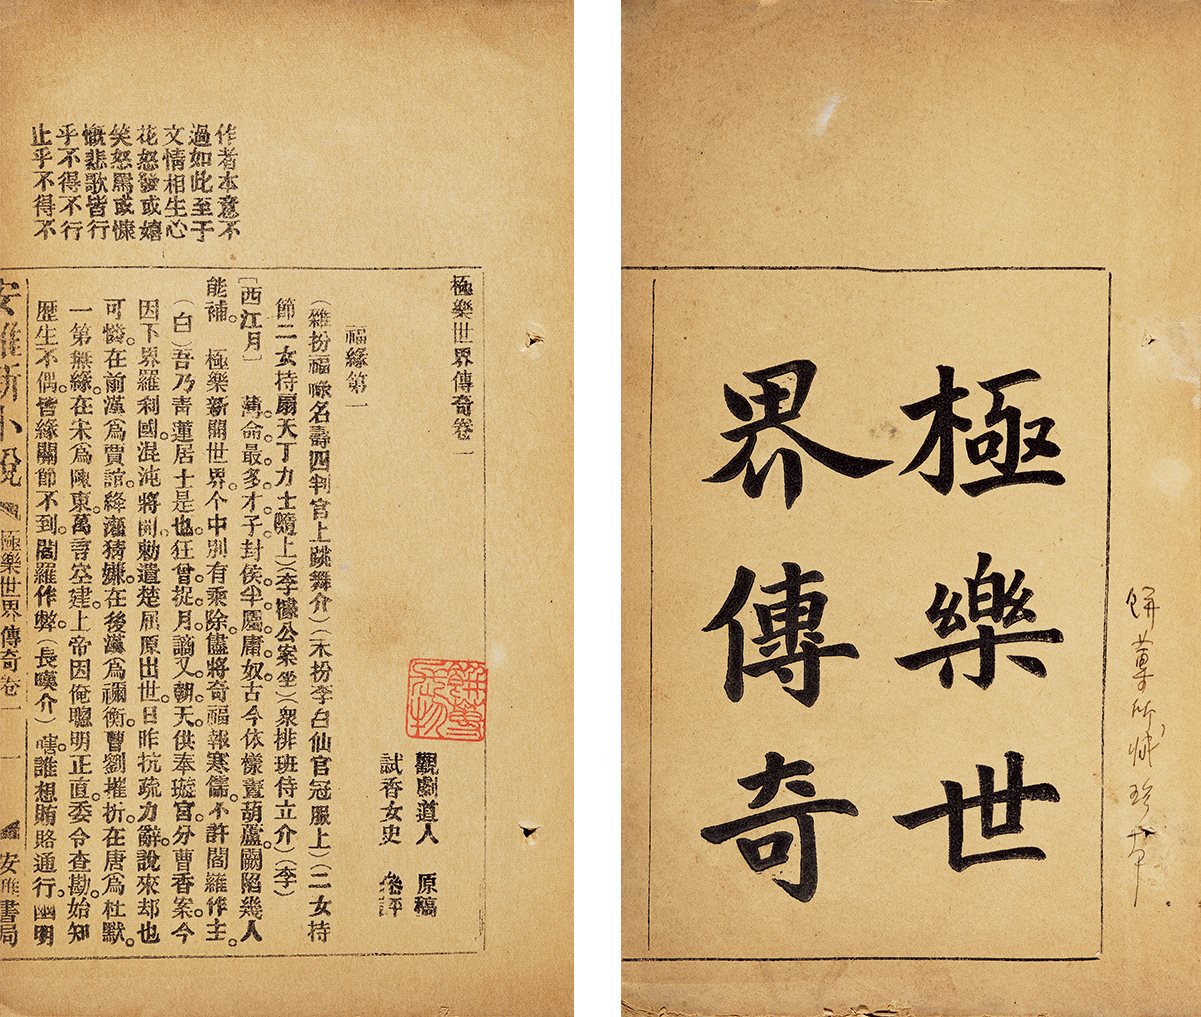 極樂世
界傳奇
所藏珍本
作者本意不
過如此至于
文情相生心
花怒發或嬉
笑怒罵或慷
慨悲歌皆行
乎不得不行
止乎不得不
極樂世界傳奇卷一
觀劇道人 原稿
試香女史 參評
福緣第一
(雜扮福祿名壽四判官上跳舞介)(末扮李白仙官冠服上)(二女持
節二女持扇天丁力士隨上)(李據公案坐)(衆排班侍立介)(李)
[西江月] 薄命最多才子。封侯半屬庸奴。古今依樣畫葫蘆。闕陷幾人
能補。 極樂新開世界。个中別有乘除。儘將奇福報寒儒。不許閻羅作主。
(白)吾乃靑蓮居士是也。狂曾捉月。謫又朝天。供奉璇宮。分曹香案。今
因下界羅利國。混沌將開。勅遣楚屈原出世。日昨抗疏力辭。說來却也
可憐。在前漢爲賈誼。絳灌猜嫌。在後漢爲禰衡。曹劉摧折。在唐爲杜默。
一第無緣。在宋爲陳東。萬言空建。上帝因俺聰明正直。委令查勘。始知
歷生不偶。皆緣關節不到。閻羅作弊。(長嘆介)嗐。誰想賄賂通行。幽明
安雅新小說 極樂世界傳奇卷一 一 安雅書局